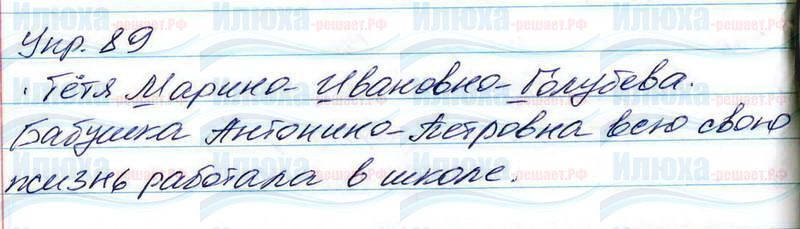 Упр. 89
Тётя Марина Ивановна Голубева.
Бабушка Антонина Петровна всю свою
жизнь работала в школе.